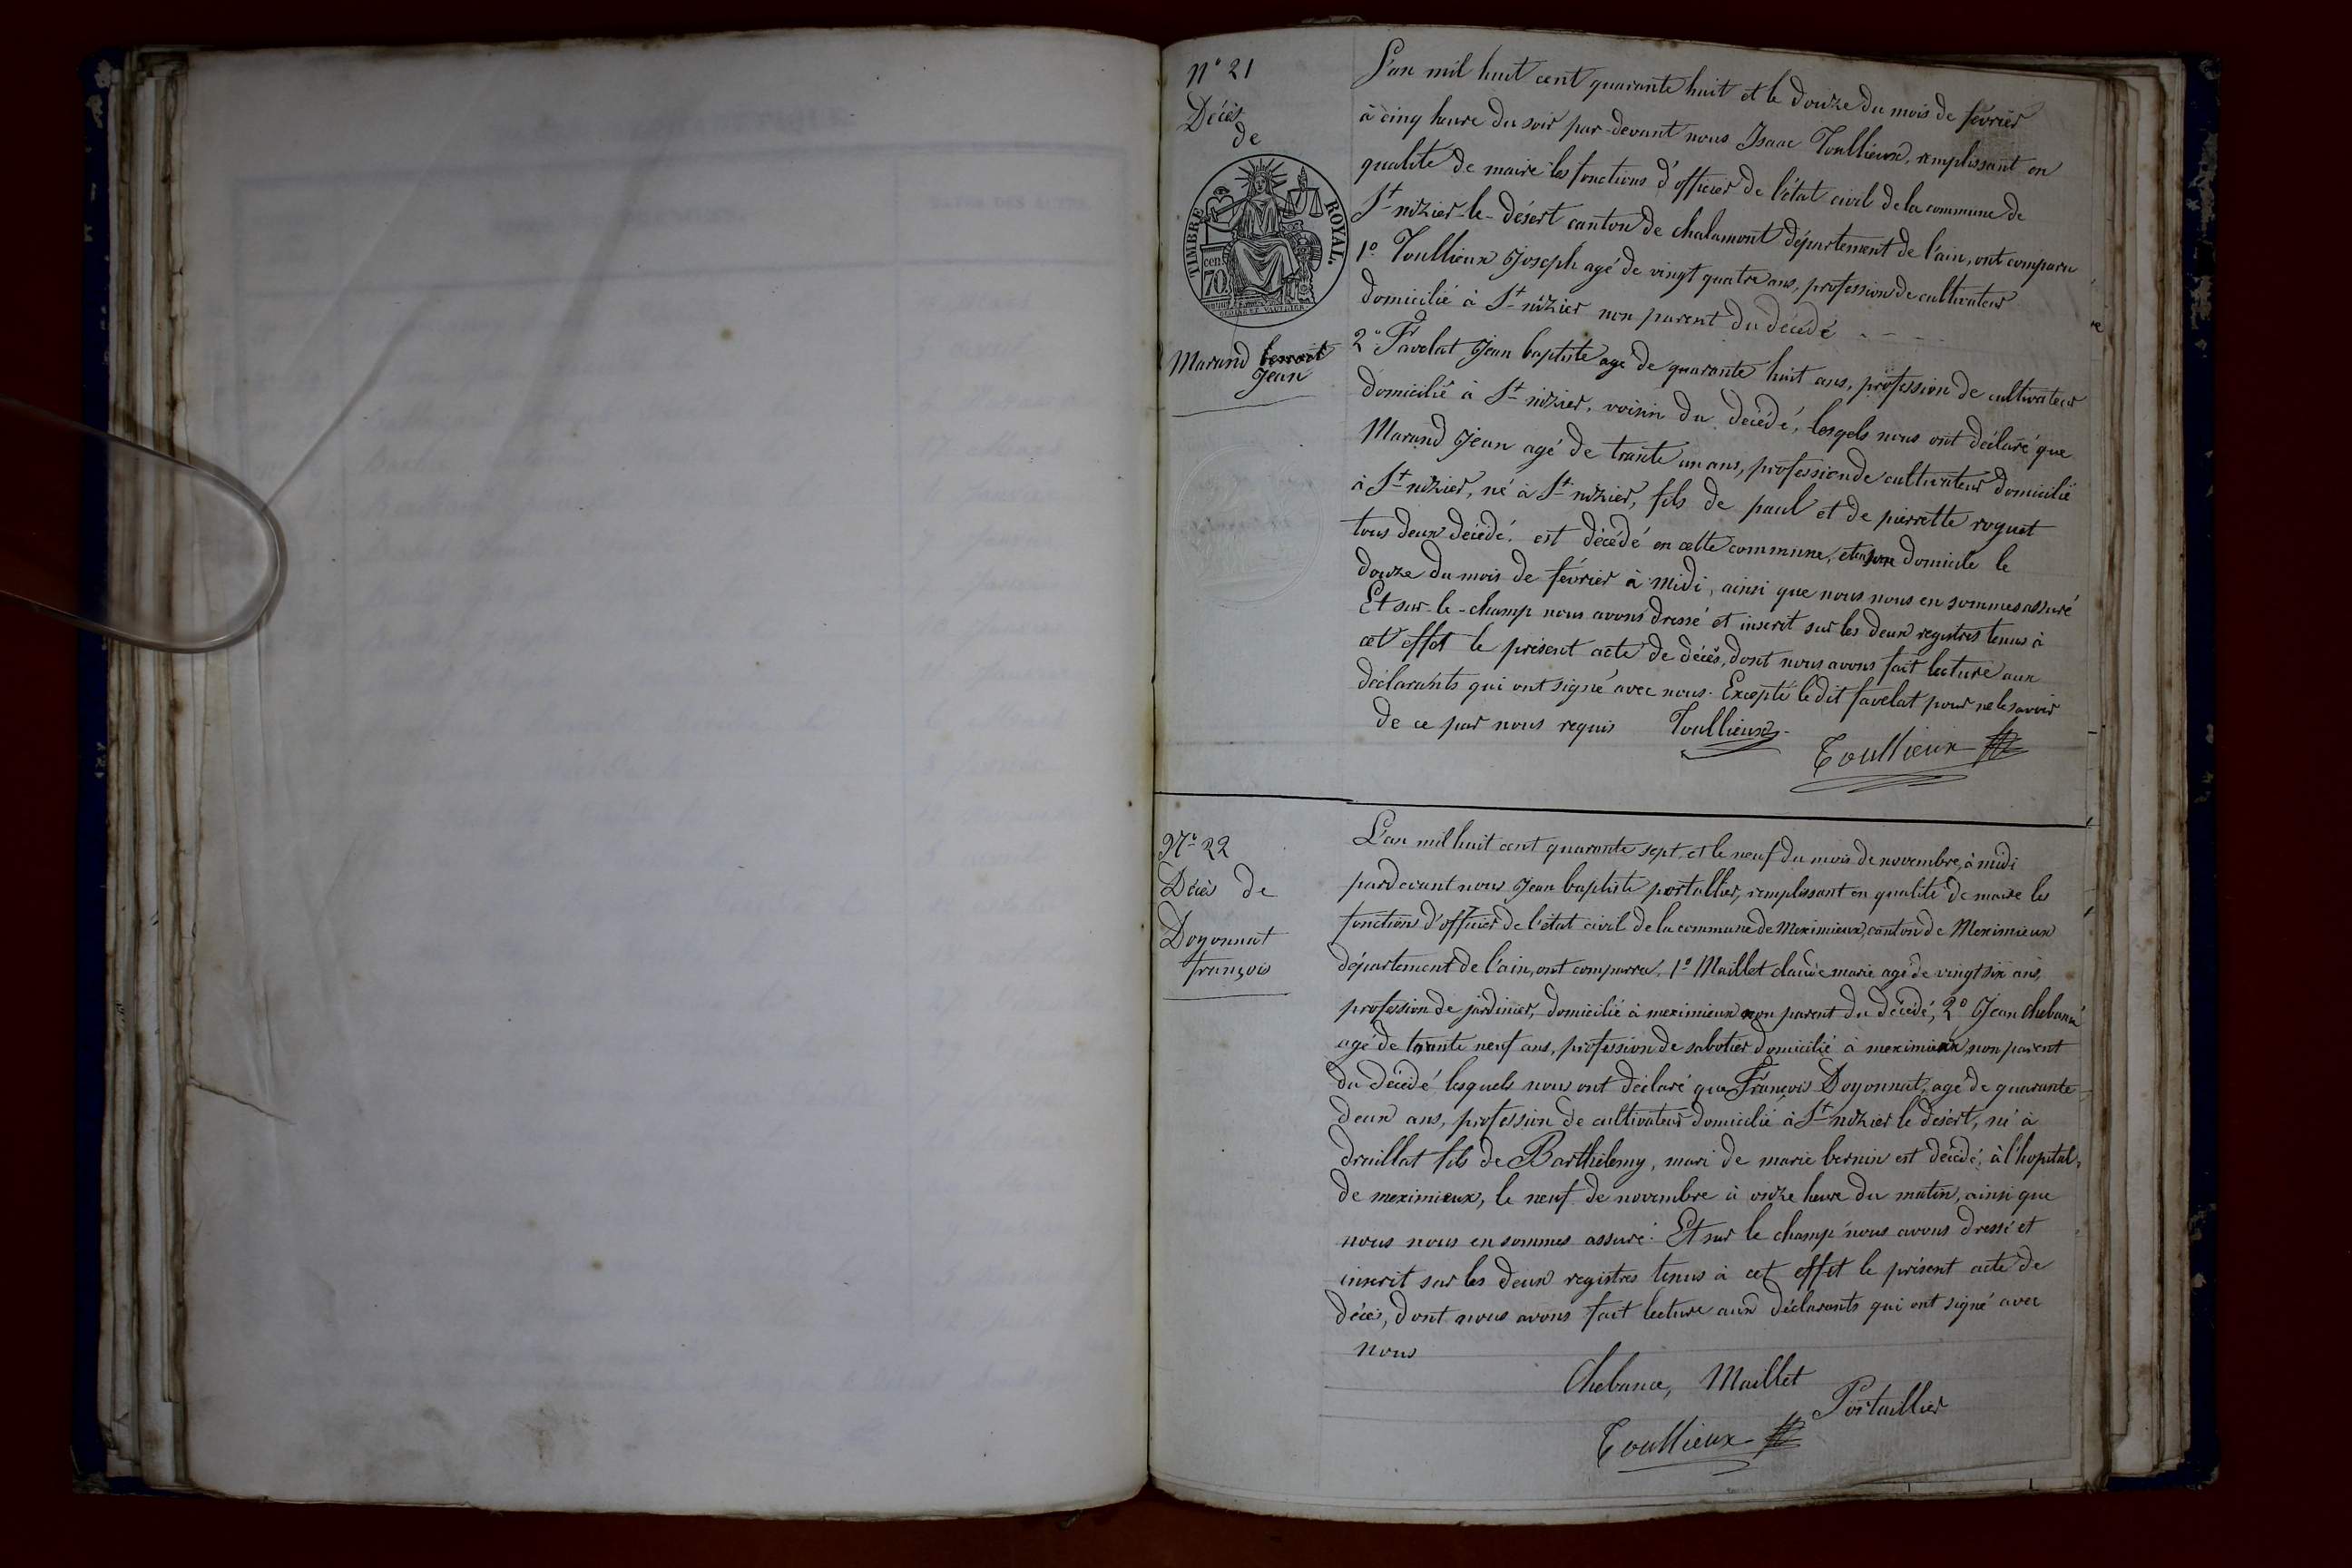 N° 21
Décès
de
TIMBRE ROYAL.
cen.
70.
Marand
Jean
L'an mil huit cent quarante huit et le douze du mois de février
à cinq heure du soir par-devant nous Isaac Toullieux, remplissant en
qualité de maire les fonctions d'officier de l'état civil de la commune de
St nizier-le-désert canton de chalamont département de l'ain, ont comparu
1° Toullieux Joseph agé de vingt quatre ans, profession de cultivateur
domicilié à St nizier non parent du décédé
2° Favelat Jean baptiste agé de quarante huit ans, profession de cultivateur
domicilié à St nizier, voisin du décédé, lesqels nous ont déclaré que
Marand Jean agé de trante un ans, profession de cultivateur domicilié
à St nizier, né à St nizier, fils de paul et de pierrette roguet
tous deux décédé. est décédé en cette commune, et en son domicile le
douze du mois de février à midi, ainsi que nous nous en sommes assuré
Et sur-le-champ nous avons dressé et inscrit sur les deux registres tenus à
cet effet le présent acte de décès, dont nous avons fait lecture aux
déclarants qui ont signé avec nous. Excepté le dit favelat pour ne le savoir
de ce par nous requis Toullieux
Toullieux
N° 22
Décès de
Doyonnat
françois
L'an mil huit cent quarante sept, et le neuf du mois de novembre, à midi
pardevant nous Jean baptiste portallier, remplissant en qualité de maire les
fonctions d'officier de l'état civil de la commune de Meximieux, canton de Meximieux
département de l'ain, ont comparru. 1° Maillet claude marie agé de vingt six ans,
profession de jardinier, domicilié à meximieux non parent du décédé, 2° Jean Chebance
agé de trante neuf ans, profession de sabotier domicilié à meximieux, non parent
du décédé lesquels nous ont déclaré que François Doyonnat, agé de quarante
deux ans, profession de cultivateur domicilié à St nizier le désert, né à
druillat fils de Barthélemy, mari de marie bernin est décédé, à l'hopital,
de meximieux, le neuf de novembre à onze heure du matin, ainsi que
nous nous en sommes assuré. Et sur le champ nous avons dressé et
inscrit sur les deux registres tenus à cet effet le présent acte de
décès, dont nous avons fait lecture aux déclarants qui ont signé avec
nous
Chebance, Maillet
Portallier
Toullieux